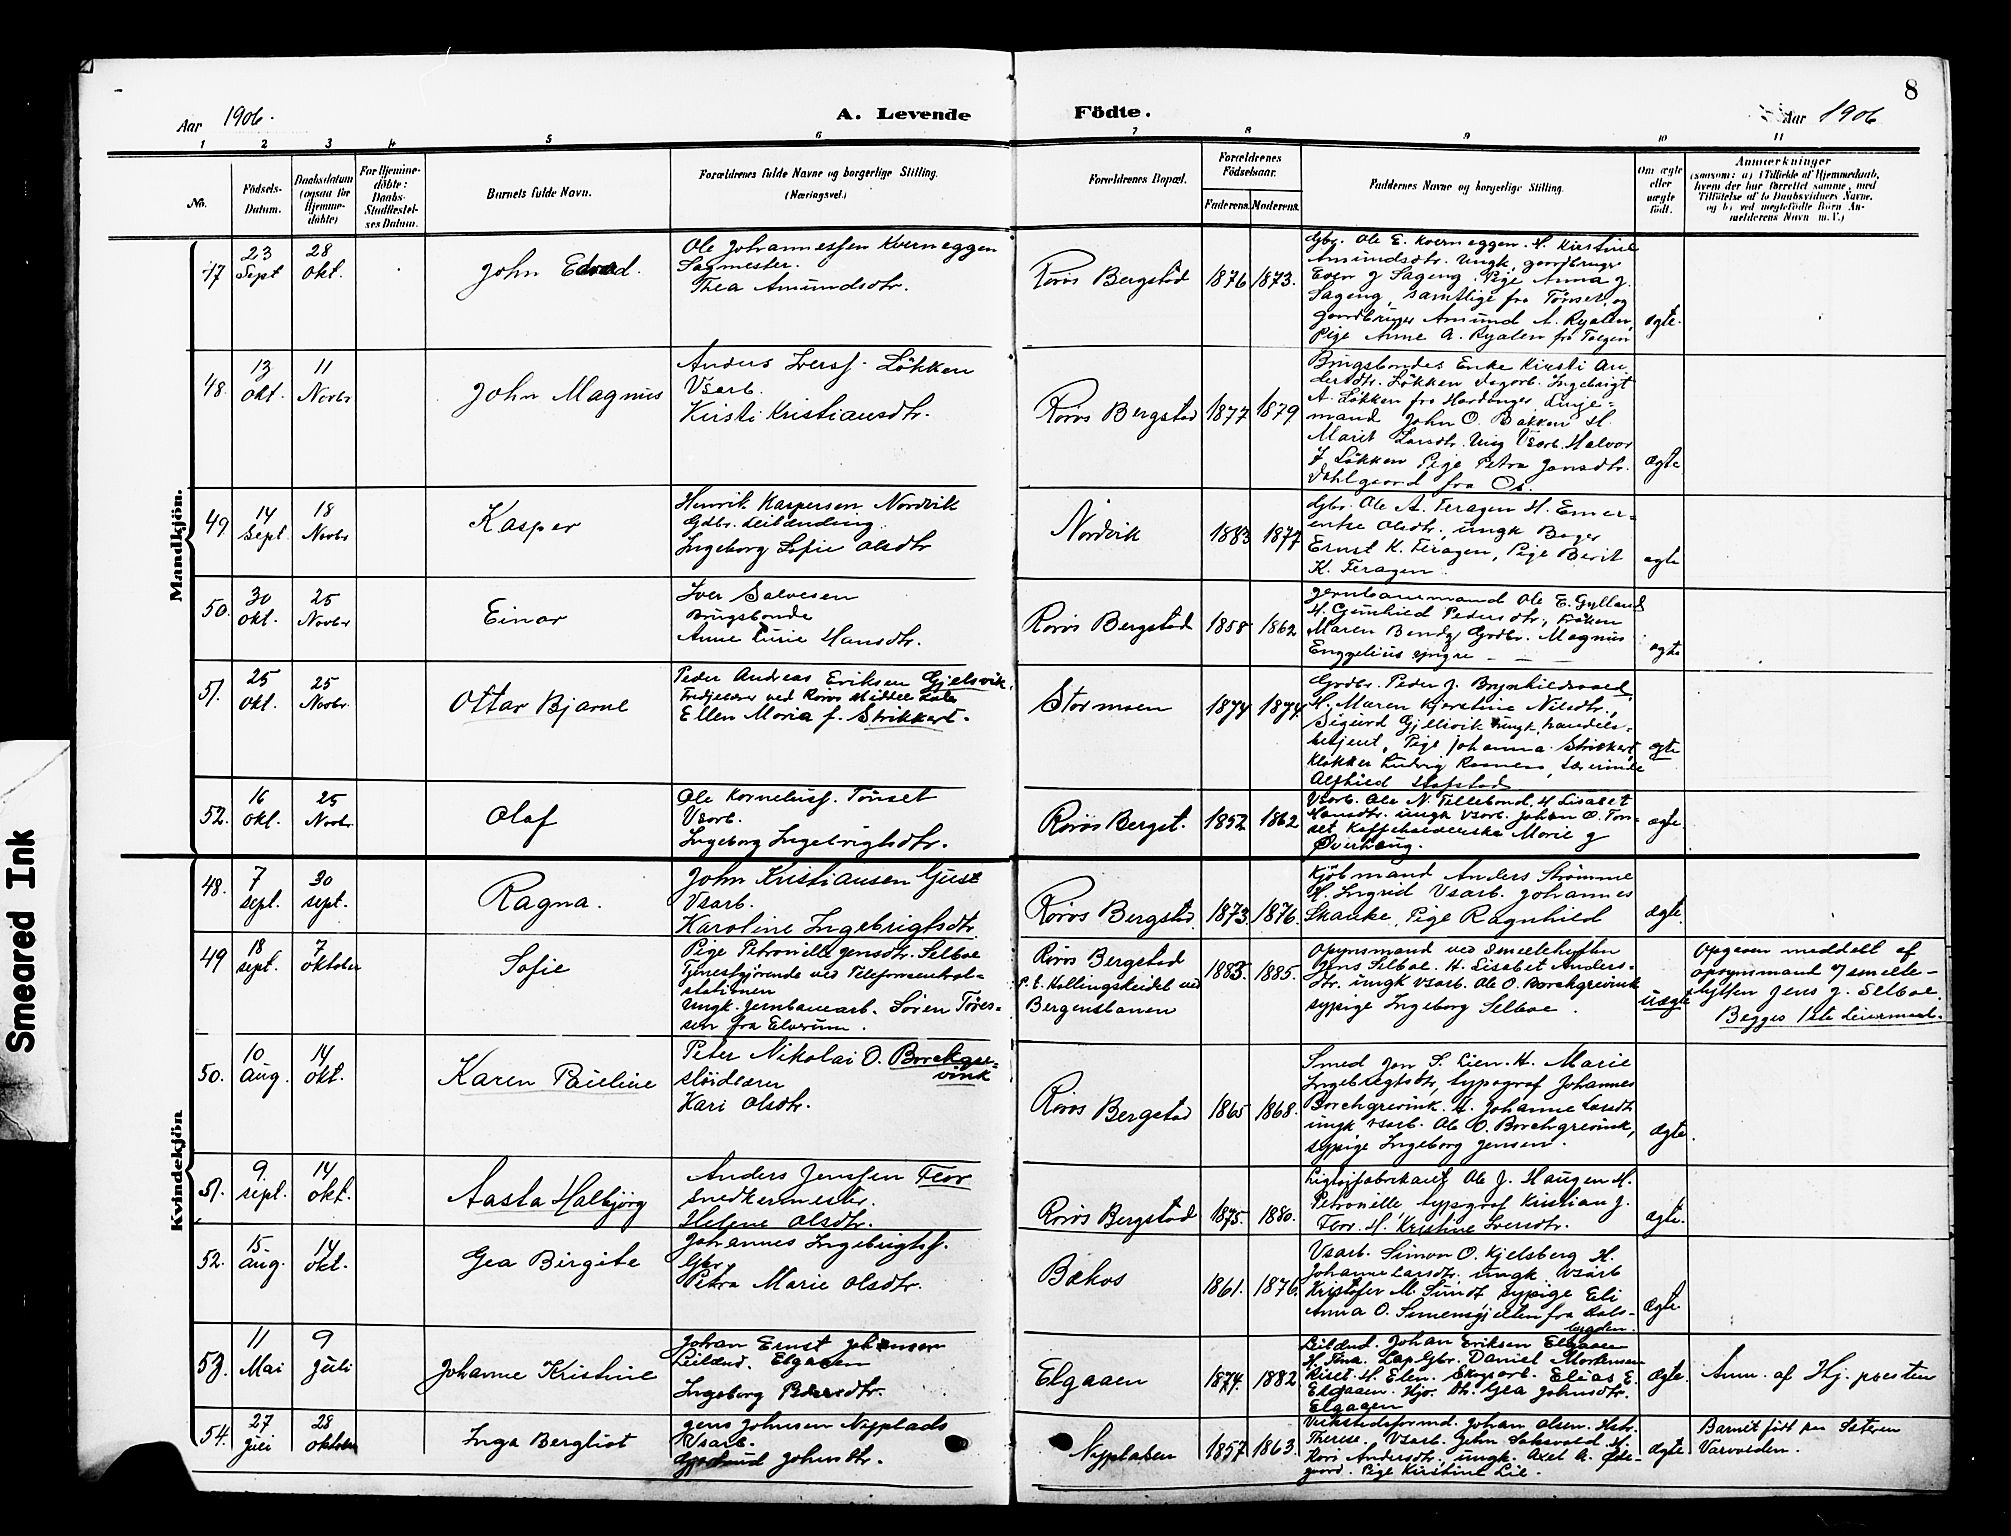 8
Aar 1906.
A. Levende Födte.
Aar 1906
1 2 3 4 5 6 7 8 9 10 11
No.
Födsels-
Datum.
Daabsdatum
(ogsaa for
Hjemme-
döbte)
For Hjemme-
döbte:
Daabs-
Stadfestel-
ses Datum.
Barnets fulde Navn.
Forældrenes fulde Navne og borgerlige Stilling.
(Næringsvei.)
Forældrenes Bopæl.
Forældrenes
Födselsaar.
Faderens. Moderens.
Faddernes Navne og borgerlige Stilling.
Om ægte
eller
uægte
födt.
Anmærkninger
(saasom: a) i Tilfælde af Hjemmedaab,
hvem der har forrettet samme, med
Tilföielse af to Daabsvidners Navne,
og b) ved uægtefödte Börn An-
melderens Navn m. V.)
Mandkjön.
47
23
Sept
28
Okt.
John Edvard.
Ole Johannessen Kverneggen
Sagmester.
Thea Amundsdtr.
Röros Bergstad
1876
1873.
Gbr. Ole E. Kverneggen. H. Kirstine
Amundsdtr. Ungk. gaardbruger
Even J Sageng. Pige Anna J.
Sageng, samtlige fra Tönset, og
gaardbruger Amund A. Ryalen,
Pige Anne A. Ryalen fra Tolgen
ægte.
48.
13
Okt.
11
Novbr
John Magnus
Anders Iversf. Lökken
Vsarb.
Kirsti Kristiansdtr.
Röros Bergstad
1877
1879.
Brugsbondes Enke Kirsti An-
dersdtr. Lökken Dagarb. Ingebrigt
A. Lökken fra Hardanger Linje-
mand John O. Bakken H.
Marit Larsdtr. Ung Vsarb. Halvor
J. Lökken Pige Petra Jonsdtr.
Dahlgaard fra Os.
Ægte
49
14
Sept.
18
Novbr
Kasper
Henrik Kaspersen Nordvik
Gdbr. Leilænding
Ingeborg Sofie Olsdtr
Nordvik
1883
1877
Gbr. Ole A. Feragen H. Emer-
entse Olsdtr., ungk Bager
Ernst K. Feragen, Pige Berit
K. Feragen.
ægte
50.
30
Okt.
25
Novbr
Einar
Iver Salvesen
Brugsbonde
Anne Hansdtr.
Röros Bergstad
1858
1862
Jernbanemand Ole E. Gylland
H. Gunhild Pedersdtr., Fröken
Maren Bendz Grdbr. Magnus
Engzelius yngre — — —
ægte
51.
25
Okt.
25
Novbr.
Ottar Bjarne
Peder Andreas Eriksen Gjelsvik,
Tredjelærer ved Röros Middelskole
Ellen Maria f. Strikkert.
Stormoen
1874
1874.
Grdbr. Peder J. Brynhildsvold,
H. Maren Kjerstine Nilsdtr.,
Sigurd Gjelsvik ungk. handels-
betjent, Pige Johanna Strikkert,
Klokker Ludvig Rosness, Lærerinde
Alfhild Stafstad
ægte
52.
16
Okt.
25
Novbr.
Olaf
Ole Korneliusf. Tönset
Vsarb.
Ingeborg Ingebrigtsdtr.
Röros Bergst.
1852
1862
Vsarb. Ole N. Tellebond. H Lisabet
Hansdtr. ungk Vsarb. Johan O. Tön-
set Kaffehusværska Marie J
Överhaug.
ægte.
Kvindekjön
48.
7
sept.
30
sept.
Ragna.
John Kristiansen Gjest
Vsarb.
Karoline Ingebrigtsdtr.
Röros Bergstad.
1873.
1876.
Kjöbmand Anders Strömme
H. Ingrid Vsarb. Johannes
Skanke, Pige Ragnhild
Ægte.
49
18
sept.
7
oktober
Sofie
Pige Petronille Jensdtr. Selboe
Tjenestgjörende ved Telefoncentral-
stationen
Ungk. Jernbanearb. Sören Töres-
sen fra Elverum.
Röros Bergstad
P.t. Hallingskeidet ved
Bergensbanen
1883
1885.
Opsynsmand ved Smeltehytten
Jens Selboe. H. Lisabet Anders-
dtr. ungk Vsarb. Ole O. Borchgrevink
sypige Ingeborg Selboe.
uægte
Opgaven meddelt af
opsynsmand v/ smelte-
hytten Jens J. Selboe.
Begges 1ste Leiermaal.
50.
10
Aug.
14
Okt.
Karen Pauline
Peter Nikolai O. Borchgre-
vink
slöidlærer
Kari Olsdtr.
Röros Bergstad
1865
1868.
Smed Jon S. Lien. H. Marie
Ingebrigtsdtr, typograf Johannes
Borchgrevink. H. Johanne Larsdtr
ungk Vsarb. Ole O. Borchgrevink,
sypige Ingeborg Jensen.
Ægte.
51.
9
sept.
14
Okt.
Aasta Halbjörg
Anders Jenssen Flor
snedkermester.
Helene Olsdtr.
Röros Bergstad
1875.
1880.
Ligtöifabrikant Ole J. Haugen H.
Petronille, typograf Kristian J.
Flor. H. Kristine Iversdtr.
ægte.
52.
15
Aug.
14
Okt.
Gea Birgite
Johannes Ingebrigtsf.
Gbr.
Petra Marie Olsdtr.
Bekos
1861.
1876.
Vsarb. Simon O. Kjelsberg H.
Johanne Larsdtr. ungk. Vsarb
Kristofer M. Sundt sypige Eli
Anna O. Simensgjelten fra Dals-
bygden.
Ægte.
53.
11
Mai
9
Juli
Johanne Kristine
Johan Ernst Johansen
Leilænd. Elgaaen
Ingeborg Pedersdtr.
Elgaaen
1874.
1882
Leilænd. Johan Eriksen Elgaaen
H. Tina. Lap. Gbr. Daniel Mortensen
Riset. H. Elen. Skogarb. Elias E.
Elgaaen. Hjv. Dt. Gea Johnsdtr.
Elgaaen
ægte.
Anm. af Hj. presten
54.
27
Juli
28
Oktober
Inga Bergliot
Jens Johnsen Nyplads
Vsarb.
Gjertrud Johnsdtr.
Nypladsen
1857
1863.
Verkstedsformd. Johan Olsen. Hstr.
Therese. Vsarb. John Saksvold H.
Kari Andersdtr., ungk. Axel A. Öde-
gaard. Pige Kirstine Lie.
ægte
Barnet födt paa Sæteren
Varvolden.
Smeared Ink